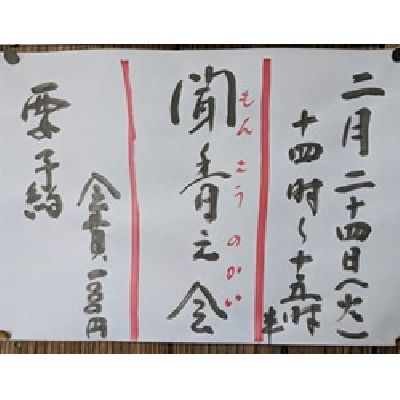 二月二十四日(火)
十四時〜十五時半
聞香之会
もんこうのかい
会費
要予約